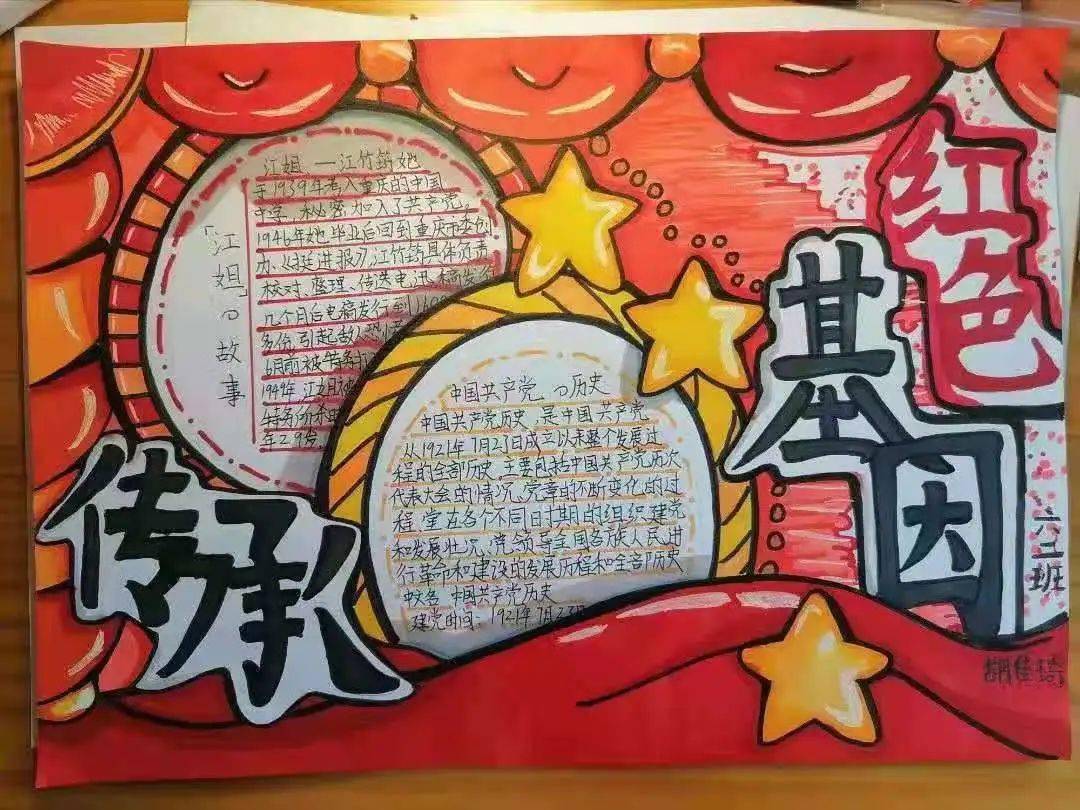 传承
红色
基因
六二班
胡佳琦
「江姐」の故事
江姐 — 江竹筠她
于1939年考入重庆的中国
中学,秘密加入了共产党
1946年她毕业后回到重庆市委创
办《挺进报》江竹筠具体负责
校对、整理、传送电迅稿发行
几个月后电稿发行到1600
多份,引起敌人恐慌
6月前被特务
1949年江
特务
年29岁
中国共产党 の历史
中国共产党历史,是中国共产党
从1921年7月23日成立以来整个发展过
程的全部历史,主要包括中国共产党历次
代表大会的情况、党章的不断变化的过
程,党在各个不同时期的组织建党
和发展壮况,党领导全国各族人民进
行革命和建设的发展历程和全部历史
中国共产党历史
建党时间:1921年7月23日